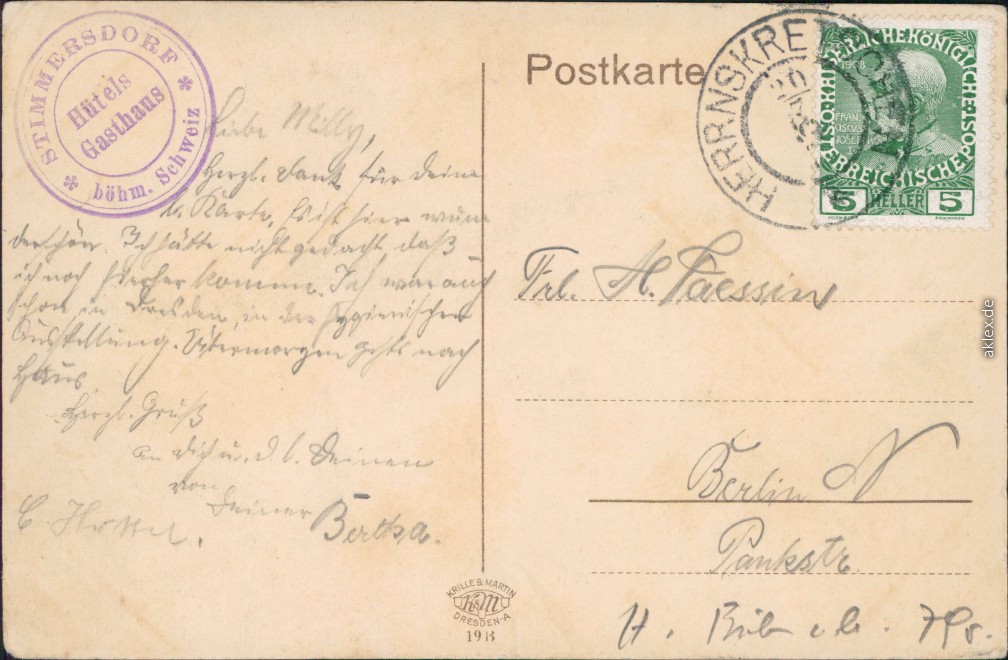 STIMMERSDORF
Hütels
Gasthaus
böhm. Schweiz
Postkarte
HERRNSKRETSCHEN
KAISERLICHE KÖNIGLICHE
ÖSTERREICHISCHE
1908
FRAN
CISCUS
JOSEF I
5 HELLER 5
Liebe Milly,
Herzl. Dank für Deine
l. Karte. Es ist hier wun
derschön. Ich hätte nicht gedacht daß
ich noch hierher komme. Ich war auch
schon in Dresden, in der Hygienischen
Ausstellung. Übermorgen gehts nach
Haus.
Herzl. Gruß
an Dich u. d. l. Deinen
von
Deiner Bertha.
Frl. M. Paessin
Berlin N
Pankstr.
KRILLE & MARTIN
K&M
DRESDEN-A
19 13
aklex.de